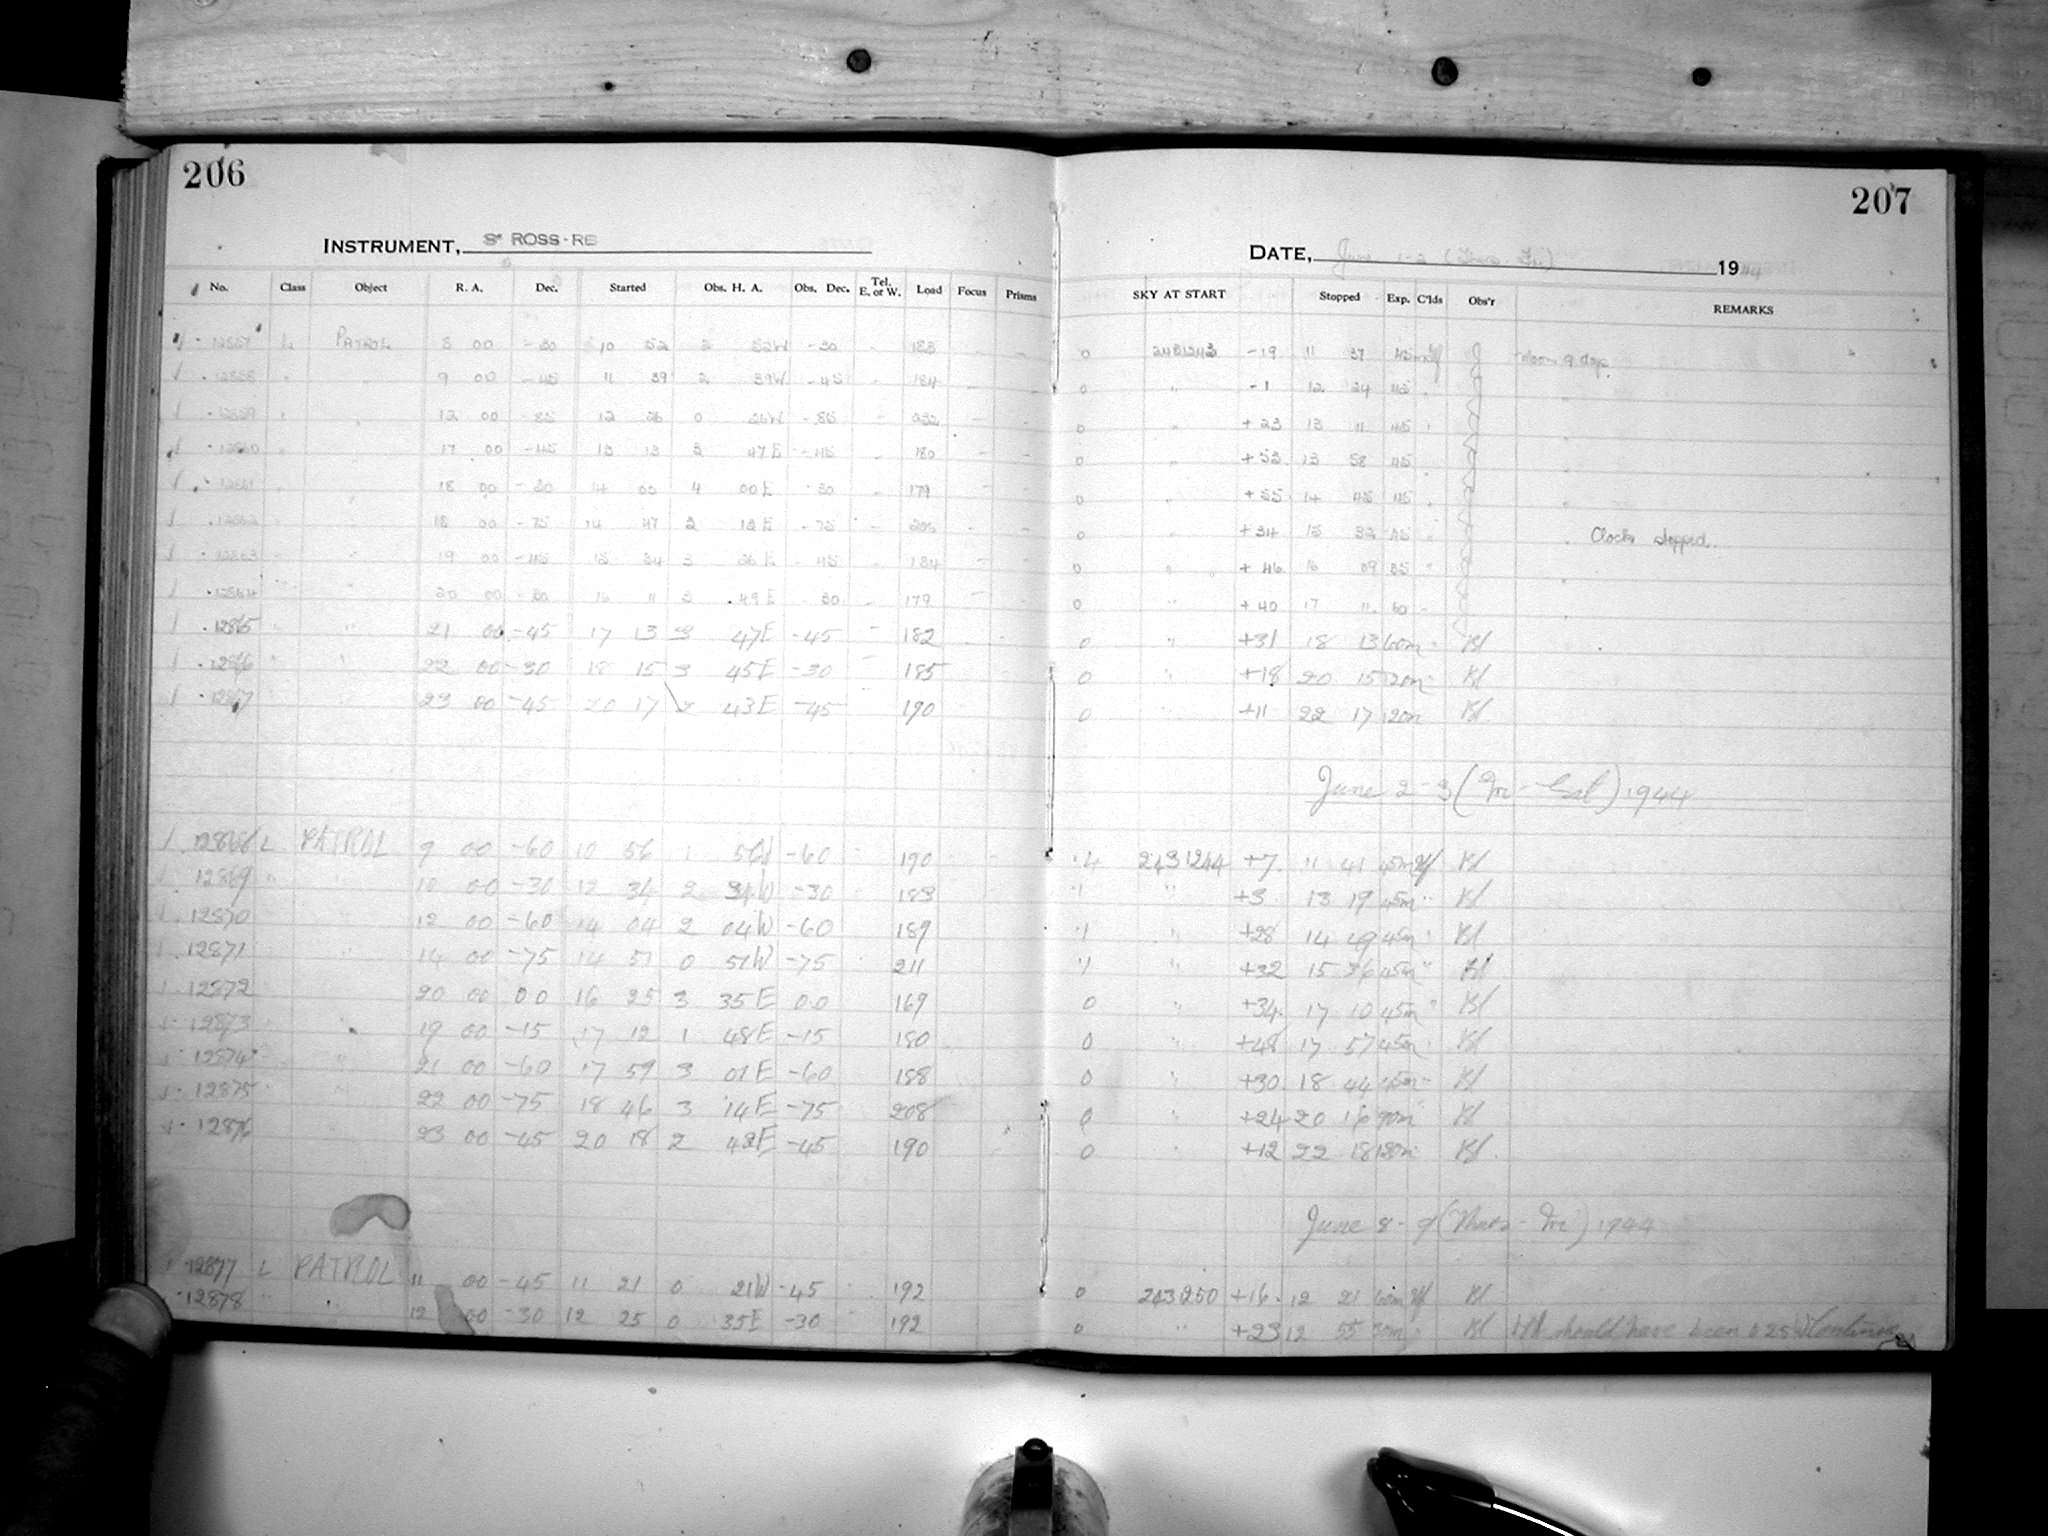 206
INSTRUMENT, ROSS-
No. Class Object R. A. Dec. Started Obs. H. A. Obs. Dec. Tel. E. or W. Load Focus Prisms
L PATROL 8 00 -30 10 52 2 52W -30
9 00 -45 11 39 2 39W -45 184
12 00 12 26 0 26W
17 00 -45 13 13 3 47E -45 180
18 00 -30 14 00 4 00E -30 179
18 00 -75 14 47 3 13E -75 205
19 00 -45 15 34 3 26E -45 184
20 00 -30 16 11 3 49E -30 179
12865 " 21 00 -45 17 13 3 47E -45 182
12866 " 22 00 -30 18 15 3 45E -30 185
12867 23 00 -45 20 17 2 43E -45 190
12868 L PATROL 9 00 -60 10 56 1 56W -60 190
12869 " 10 00 -30 12 34 2 34W -30 183
12870 " 12 00 -60 14 04 2 04W -60 189
12871 14 00 -75 14 51 0 51W -75 211
12872 20 00 00 16 25 3 35E 00 169
12873 " 19 00 -15 17 12 1 48E -15 180
12874 " 21 00 -60 17 59 3 01E -60 188
12875 22 00 -75 18 46 3 14E -75 208
12876 23 00 -45 20 18 2 42E -45 190
12877 L PATROL 11 00 -45 11 21 0 21W -45 192
12878 " 12 00 -30 12 25 0 35E -30 192
207
DATE, June 1-2 1944
SKY AT START Stopped Exp. C'lds Obs'r REMARKS
0 2431243 -19 11 37 45m J Moon 9 days
0 " -1 12 24 45 J "
0 " +23 13 11 45 J "
0 " +53 13 58 45 J "
0 " +55 14 45 45 J "
0 " +34 15 32 45 J " Clock stopped.
0 " +46 16 09 35 J "
0 " +40 17 11 60 J "
0 " +31 18 13 60m Bl
0 " +18 20 15 120m Bl
0 " +11 22 17 120m Bl
June 2-3 (Fri-Sat) 1944
.4 2431244 +7 11 41 45m Bl
.1 " +3 13 19 45m Bl
.1 " +28 14 49 45m Bl
.1 " +32 15 36 45m Bl
0 " +34 17 10 45m Bl
0 " +48 17 57 45m Bl
0 " +30 18 44 45m Bl
0 " +24 20 16 90m Bl
0 " +12 22 18 120m Bl
June 8-9 (Thurs-Fri) 1944
0 243250 +16 12 21 60m Bl
0 " +23 12 55 30m Bl HA should have been 0 25W